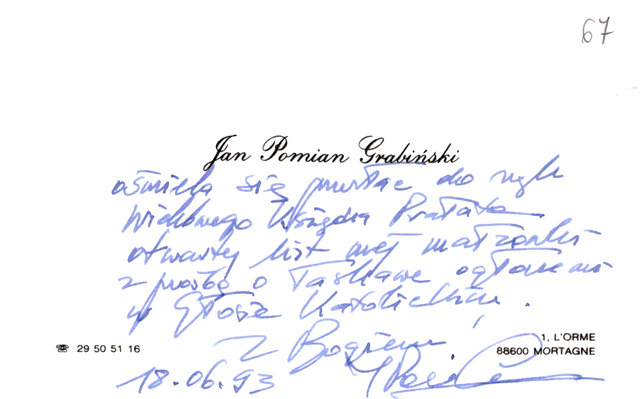 67
Jan Pomian Grabiński
ośmiela się przesłać do rąk
Księdza Prałata
otwarty list mej małżonki
z prośbą o łaskawe ogłoszenie
w Głosie Katolickim.
Z Bogiem!
☎ 29 50 51 16
1, L'ORME
88600 MORTAGNE
18.06.93